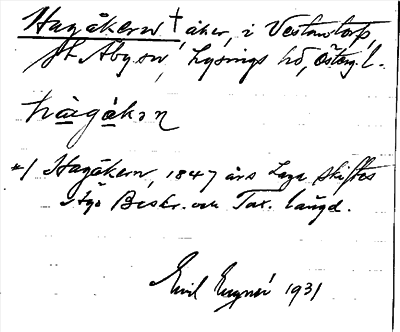 Hagåkern † åker, i Västantorp,
St Åby sn, Lysings hd, Österg. l.
hàgákɔn
*/ Hagåkern, 1847 års Laga skiftes
Ägo Beskr. och Tax. längd.
Emil 1931